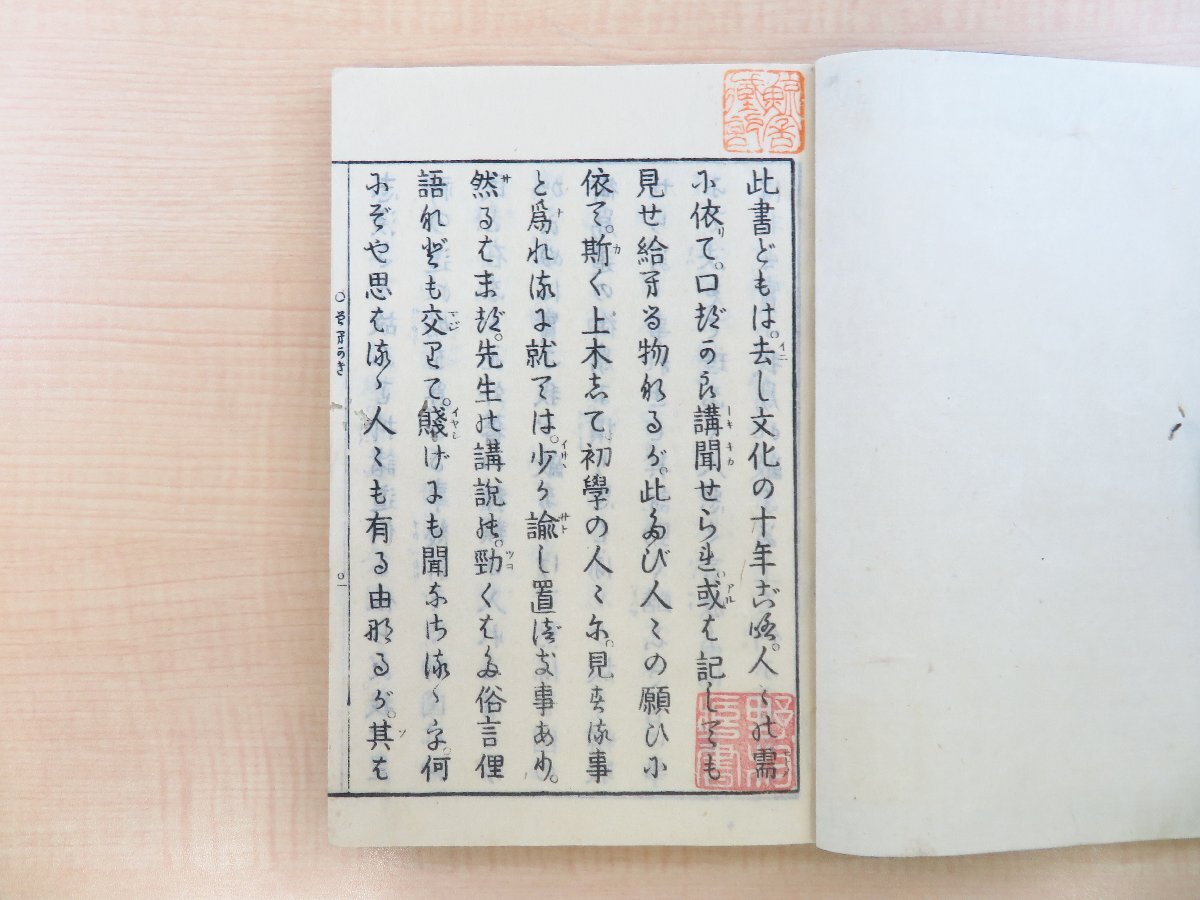 此書どもは。去し文化の十年ごろ。人々の需
に依て。口づから講聞せられ。或は記しても
見せ給へる物なるが。此たび人々の願ひに
依て。斯く上木して初學の人々に。見する事
と爲れるに就ては。少か諭し置べき事あり。
然るはまづ。先生の講説の。勁くはた俗言俚
語なども交りて。賤げにも聞なさるゝを。何
にぞや思はるゝ人々も有る由なるが。其は